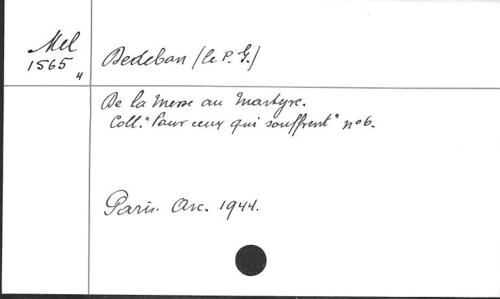 Mel
1565
4
Dedeban (le P. G.)
De la Messe au Martyre.
Coll. "Pour ceux qui souffrent" no 6.
Paris. Arc. 1944.